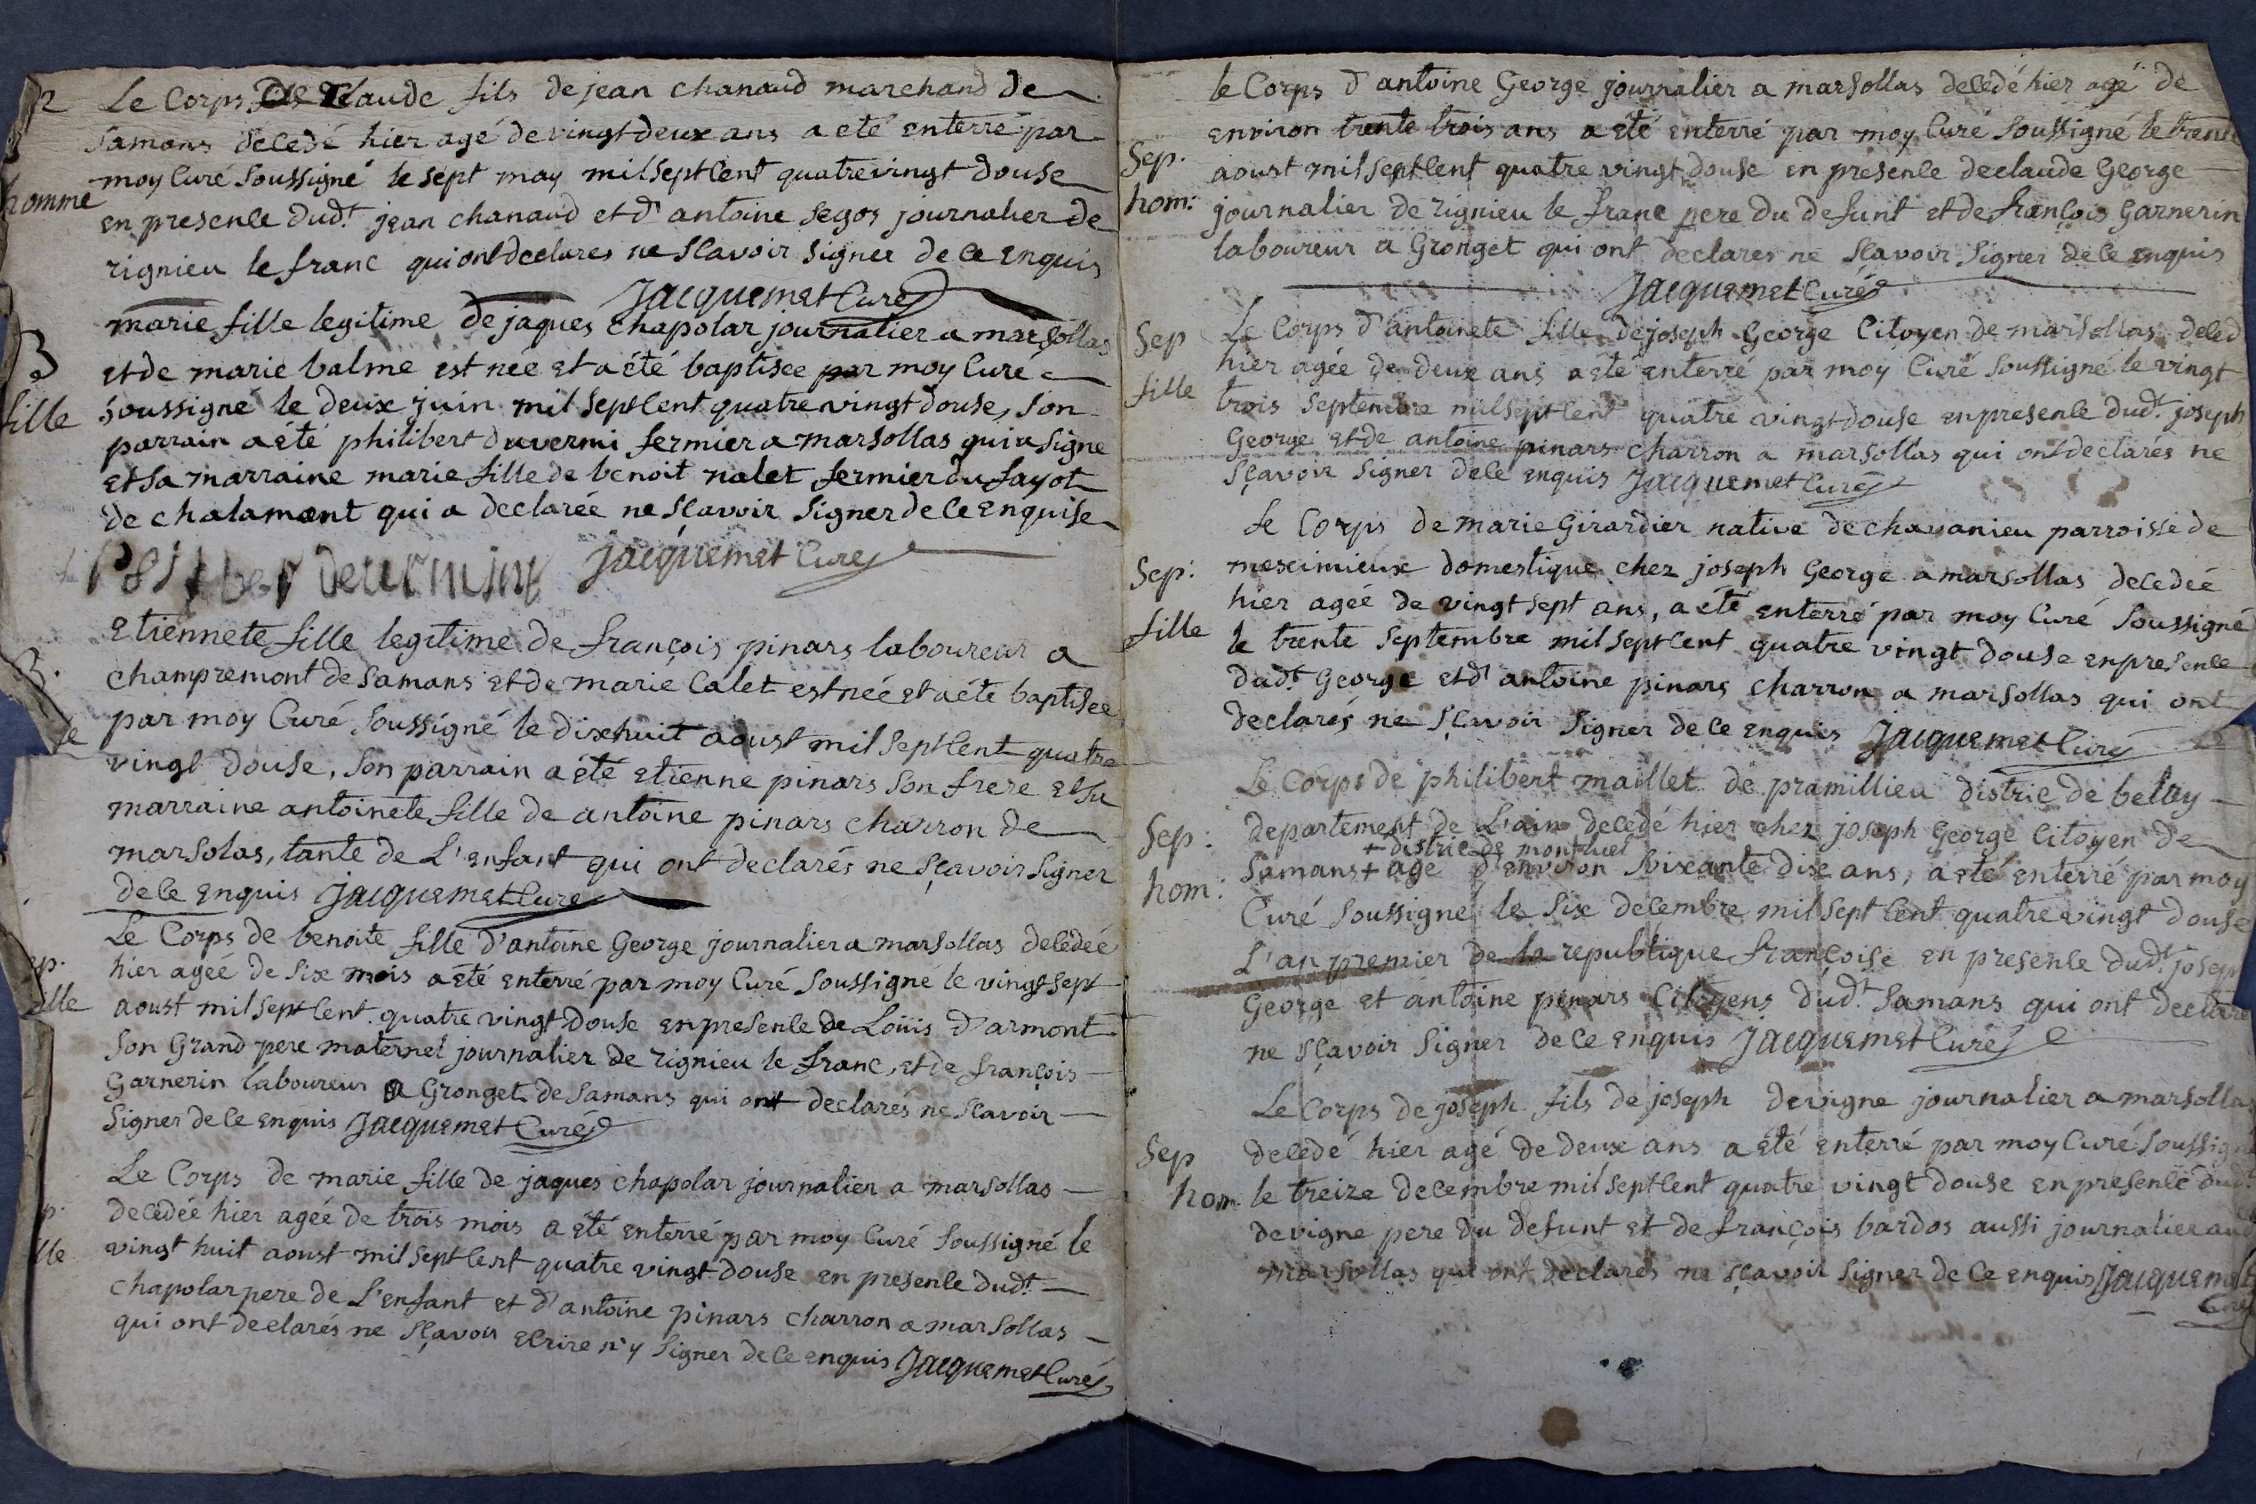 2
Le Corps De Claude fils de jean chanaud marchand de
Samans décedé hier agé de vingt deux ans a eté enterré par
homme
moy Curé Soussigné le sept may mil sept Cent quatre vingt douse
en presence dudt. jean chanaud et d'antoine segos journalier de
rignieu le franc qui ont declares ne Scavoir Signer de ce enquis
Jacquemet Curé
B
fille
marie fille legitime de jaques chapolar journalier a marsollas
et de marie balme est née et a été baptisée par moy Curé
soussigné le deux juin mil Sept Cent quatre vingt douse, Son
parrain a été philibert duvermi fermier a marsollas qui a Signe
et sa marraine marie fille de benoit nalet fermier du fayot
de chalamont qui a declarée ne Sçavoir Signer de ce enquise
Jacquemet Curé
B.
Etiennete fille legitime de françois pinars laboureur a
champremont de Samans et de marie Calet est née et a éte baptisee
par moy Curé Soussigné le dixhuit aoust mil Sept Cent quatre
vingt douse, Son parrain a été etienne pinars Son frere et Sa
marraine antoinete fille de antoine pinars charron de
marsolas, tante de L'enfant qui ont declarés ne Sçavoir Signer
de ce enquis Jacquemet Curé
ep.
ille
Le Corps de benoite fille d'antoine George journalier a marsollas decedeé
hier ageé de Six mois a été enterré par moy Curé Soussigné le vingt sept
aoust mil Sept Cent quatre vingt douse en presence de Loüis d'armont
Son Grand pere maternel journalier de rignieu le franc, et de françois
Garnerin laboureur a Gronget de Samans qui ont declarés ne Scavoir
Signer de ce enquis Jacquemet Curé
p.
lle
Le Corps de marie fille de jaques chapolar journalier a marsollas
decedée hier agée de trois mois a été enterré par moy Curé Soussigné le
vingt huit aoust mil Sept Cent quatre vingt douse en presence dudt.
chapolar pere de L'enfant et d'antoine pinars charron a marsollas
qui ont declarés ne Sçavoir ecrire n'y Signer de ce enquis Jacquemet Curé
Sep.
hom:
le Corps d'antoine George journalier a marsollas decedé hier agé de
environ trente trois ans a été enterré par moy Curé Soussigné le trente
aoust mil Sept Cent quatre vingt douse en presence de claude George
journalier de rignieu le franc pere du defunt et de françois Garnerin
laboureur a Gronget qui ont declares ne Sçavoir Signer de ce enquis
Jacquemet Curé
Sep
fille
Le Corps d'antoinete fille de joseph George Citoyen de marsollas deced
hier agée de deux ans a été enterré par moy Curé Soussigné le vingt
trois Septembre mil Sept Cent quatre vingt douse en presence dudt. joseph
George et de antoine pinars charron a marsollas qui ont declarés ne
Sçavoir Signer de ce enquis Jacquemet Curé
Sep:
fille
Le Corps de marie Girardier native de chavanieu parroisse de
meximieux domestique chez joseph George a marsollas decedeé
hier ageé de vingt sept ans, a été enterré par moy Curé Soussigné
le trente Septembre mil Sept Cent quatre vingt douse en presence
dudt. George et d'antoine pinars charron a marsollas qui ont
declarés ne Sçavoir Signer de ce enquis Jacquemet Curé
Sep:
hom:
Le Corps de philibert maillet de pramillieu distric de belley
departement de L'ain decedé hier chez joseph George Citoyen de
+ distric de montluel
Samans + agé d'environ Soixante dix ans, a eté enterré par moy
Curé Soussigné le Six decembre mil Sept Cent quatre vingt douse
L'an premier de la republique françoise en presence dudt. josep
George et antoine pinars Citoyens dudt. Samans qui ont declaré
ne Sçavoir Signer de ce enquis Jacquemet Curé
Sep
hom
Le Corps de joseph fils de joseph devigne journalier a marsollas
decedé hier agé de deux ans a été enterré par moy Curé Soussigné
le treize decembre mil Sept Cent quatre vingt douse en presence dudt.
devigne pere du defunt et de françois bardos aussi journalier aud
marsollas qui ont declarés ne Sçavoir Signer de ce enquis Jacquemet
Curé